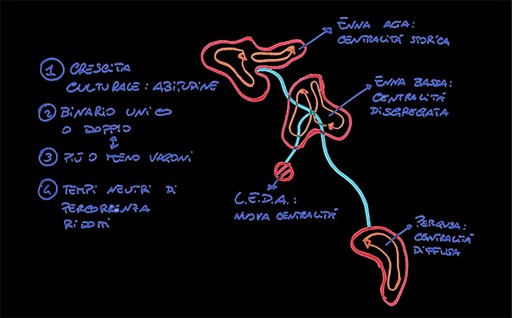 1 CRESCITA
CULTURALE: ABITUDINE
2 BINARIO UNICO
O DOPPIO
3 PIÙ O MENO VAGONI
4 TEMPI NEUTRI DI
PERCORRENZA
RIDOTTI
ENNA ALTA:
CENTRALITÀ STORICA
ENNA BASSA:
CENTRALITÀ
DISGREGATA
C.E.D.A.:
NUOVA CENTRALITÀ
PERGUSA:
CENTRALITÀ
DIFFUSA